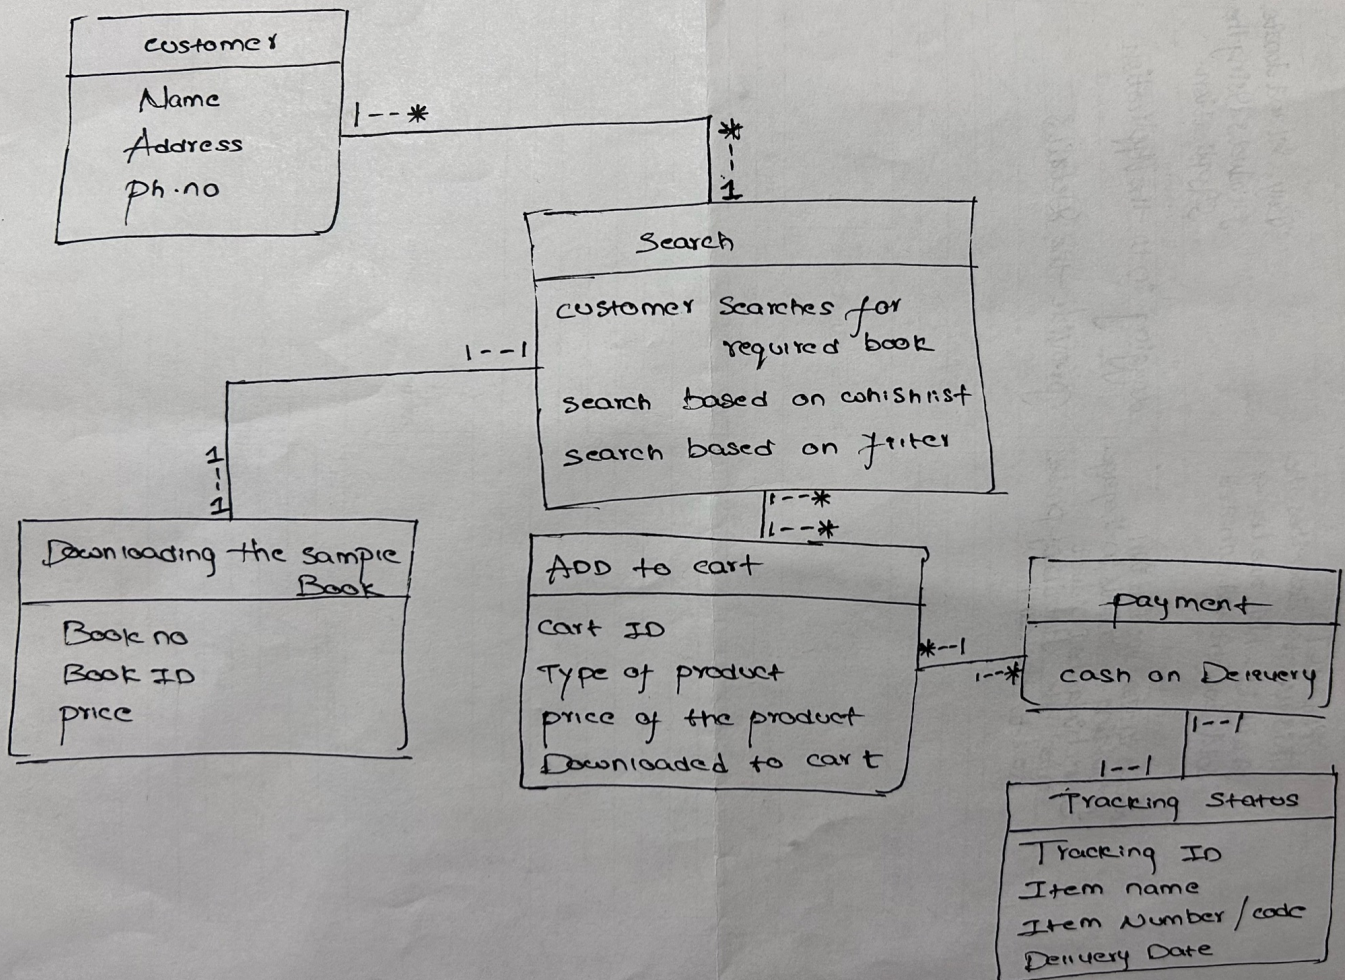 customer
Name
Address
ph.no
1--*
*--1
Search
customer searches for
required book
search based on wishlist
search based on filter
1--1
1--1
Downloading the sample
Book
Book no
Book ID
price
1--*
1--*
ADD to cart
cart ID
Type of product
price of the product
Downloaded to cart
*--1
1--*
payment
cash on Delevery
1--1
1--1
Tracking Status
Tracking ID
Item name
Item Number/code
Delivery Date